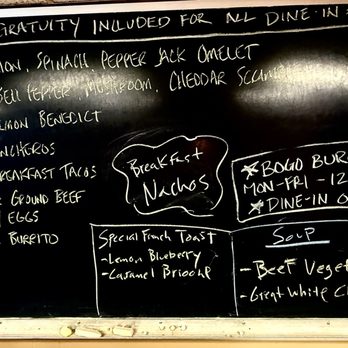 GRATUITY INCLUDED FOR ALL DINE-IN
MON, SPINACH, PEPPER JACK OMELET
BELL PEPPER, MUSHROOM, CHEDDAR
LMON BENEDICT
NCHEROS
REAKFAST TACOS
GROUND BEEF
EGGS
BURRITO
BREAKFAST
NACHOS
BOGO BUR
MON-FRI - 12
DINE-IN O
Special French Toast
- Lemon Blueberry
- Caramel Brioche
SOUP
- BEEF VEGET
- Great White C